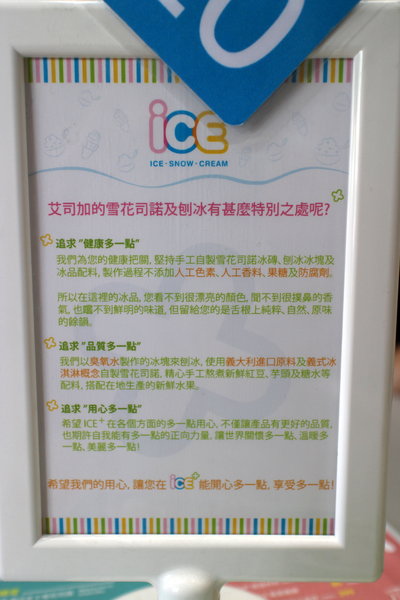 iCE
ICE·SNOW·CREAM
艾司加的雪花司諾及刨冰有甚麼特別之處呢?
追求"健康多一點"
我們為您的健康把關, 堅持手工自製雪花司諾冰磚、刨冰冰塊及
冰品配料, 製作過程不添加人工色素、人工香料、果糖及防腐劑。
所以在這裡的冰品, 您看不到很漂亮的顏色, 聞不到很撲鼻的香
氣, 也嚐不到鮮明的味道, 但留給您的是舌根上純粹、自然、原味
的餘韻。
追求"品質多一點"
我們以臭氧水製作的冰塊來刨冰, 使用義大利進口原料及義式冰
淇淋概念自製雪花司諾, 精心手工熬煮新鮮紅豆、芋頭及糖水等
配料, 搭配在地生產的新鮮水果。
追求"用心多一點"
希望 ICE+ 在各個方面的多一點用心, 不僅讓產品有更好的品質,
也期許自我能有多一點的正向力量, 讓世界關懷多一點、溫暖多
一點、美麗多一點!
希望我們的用心, 讓您在 iCE+ 能開心多一點, 享受多一點!